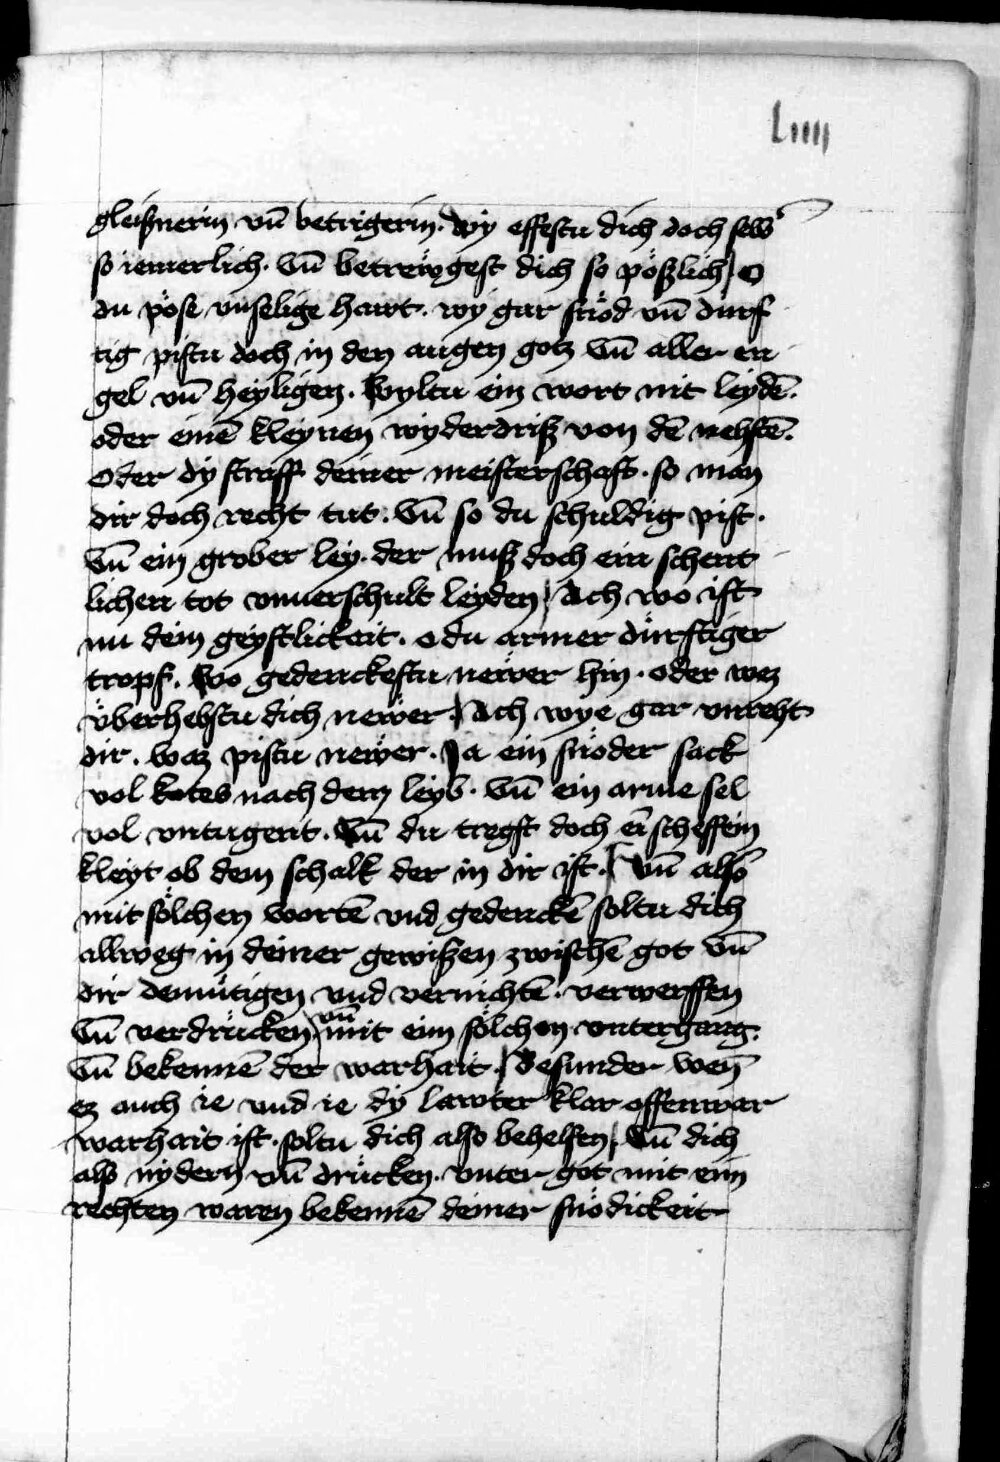 Liiij
gleißnerin vn̄ betrigerin. wy effestu dich doch selbˢ
so iemerlich. Vn̄ betreẅgest dich so pößlich / O
du pöse vnselige hawt. wy gar snöd vn̄ dürf
tig pistu doch in den augen gotz Vn̄ aller en
gel vn̄ heyligen. Wyltu ein wort nit leydē.
oder einē kleynen wyderdriß von dē nehstē.
Oder dy straff deiner meisterschaft. so man
dir doch recht tut. Vn̄ so du schuldig pist.
Vn̄ ein grober ley. der muß doch ein schent
lichen tot vnuerschult leyden / Ach wo ist
nu dein geystlickeit. o du armer dürftiger
tropf. Wo gedenckestu newer hin. oder wez
v̈berhebstu dich newer. / Ach wye gar vnreht
dir. Waz pistu newer. Ja ein snöder sack
vol kotes nach dem leyb. Vn̄ ein arme sel
vol vntugent. Vn̄ du tregst doch eī scheffein
kleyt ob dem schalk der in dir ist. / Vn̄ also
mit sölchen wortē vnd gedenckē soltu dich
allweg in deiner gewißen zwischē got Vn̄
dir demütigen vnd vernichtē. verwerffen
Vn̄ verdrücken vn̄ mit eim sölchen vntergang.
Vn̄ bekennē der warhait. / Besunder wen̄
ez auch ie vnd ie dy lawter klar offenwar
warhait ist. soltu dich also behelfen / Vn̄ dich
als nydern vn̄ drücken. vnter got mit eim
rechten waren bekennē deiner snödickeit